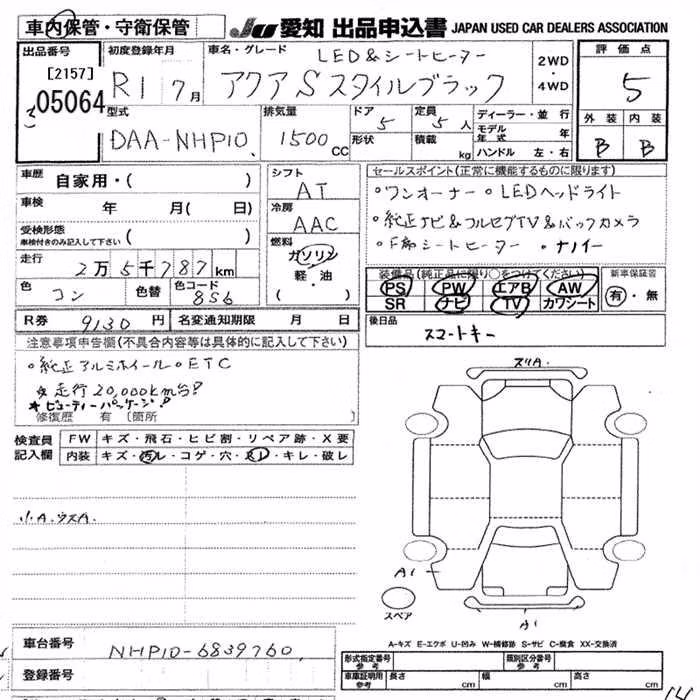 車内保管・守衛保管 JU 愛知 出品申込書 JAPAN USED CAR DEALERS ASSOCIATION
出品番号
[2157]
05064
初度登録年月
R1 7月
車名・グレード
LED&シートヒーター
アクア S スタイルブラック
2WD
・
4WD
評価点
5
外装 内装
B B
型式
DAA-NHP10
排気量
1500 CC
ドア 5
形状
定員 5人
積載 kg
ディーラー・並行
モデル年式 年
ハンドル 左・右
車歴 自家用・( )
車検 年 月( 日)
受検形態
車検付きのみ記入して下さい ( )
走行 2万5千787km
色 コン 色替 色コード 8S6
R券 9130円 名変通知期限 月 日
シフト
AT
冷房
AAC
燃料
ガソリン
軽・油
( )
セールスポイント(正常に機能するものに限ります)
・ワンオーナー ・LEDヘッドライト
・純正ナビ&フルセグTV&バックカメラ
・F席シートヒーター ・ナノイー
装備品(純正品に限り○をつけてください)
PS PW エアB AW
SR ナビ TV カワシート
新車保証書
有・無
後日品
スマートキー
注意事項申告欄(不具合内容等は具体的に記入して下さい)
・純正アルミホイール ・ETC
★走行20,000km台!
★ビューティーパッケージ!
修復歴 有 [箇所
検査員
記入欄
FW キズ・飛石・ヒビ割・リペア跡・X要
内装 キズ・汚レ・コゲ・穴・スレ・キレ・破レ
小A.ウスA.
スリA.
A1
A1
スペア
A-キズ E-エクボ U-凹み W-補修跡 S-サビ C-腐食 XX-交換済
車台番号 NHP10-6839760
登録番号
型式指定番号
参考
類別区分番号
参考
車庫証明用
参考
長さ cm 幅 cm 高さ cm
14